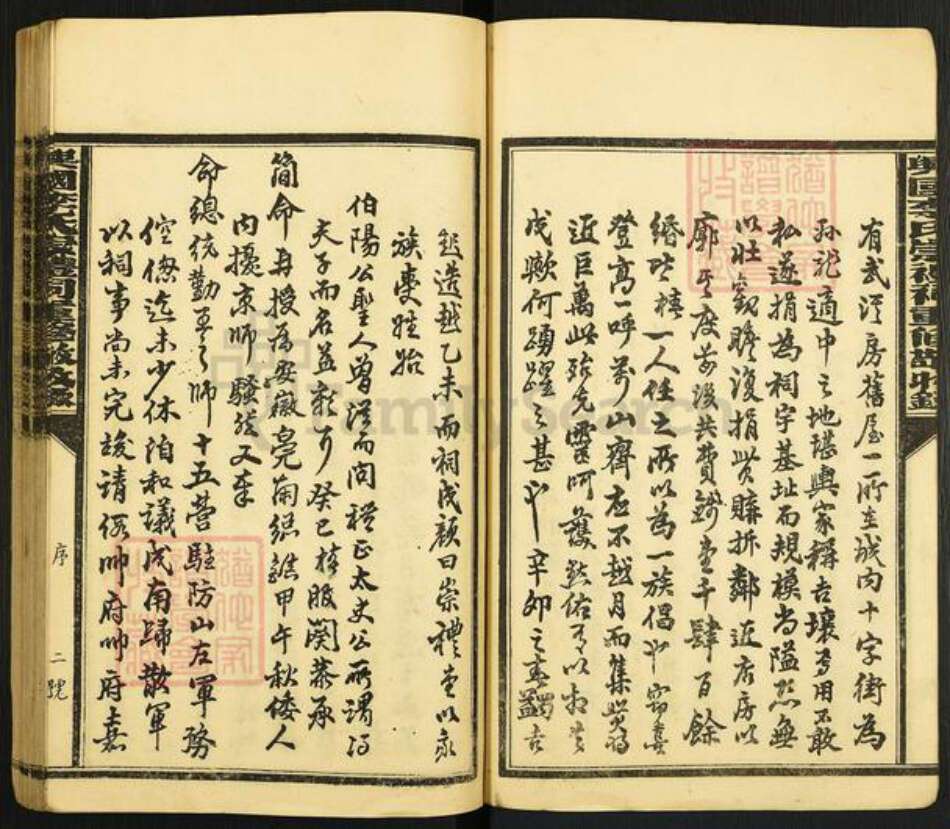 有武漢房舊屋一所在城內十字街為
孫祀適中之地堪輿家稱吉壤焉用不敢
私遂捐為祠宇基址而規模尚隘恐無
以壯觀瞻復捐貲購拆鄰近店房以
廓其度前後共費錢壹千肆百餘
緡皆椿一人任之所以為一族倡也
登高一呼萬山齊應不越月而集貲得
近巨萬此殆先靈呵護默佑有以
成歟何踴躍之甚也辛卯之春蠲吉
起造越乙未而祠成顏曰崇禮堂以我
族受姓始
伯陽公聖人曾從而問禮正太史公所謂得
夫子而名益彰者癸巳椿服闋恭承
簡命再授為安徽亳
甲午秋倭人
內擾京師騷然又奉
命總統勤王之師十五營駐防山左軍務
倥傯迄未少休洎和議成南歸散軍
以祠事尚未完竣請假帥府帥府嘉
序
二號
FamilySearch